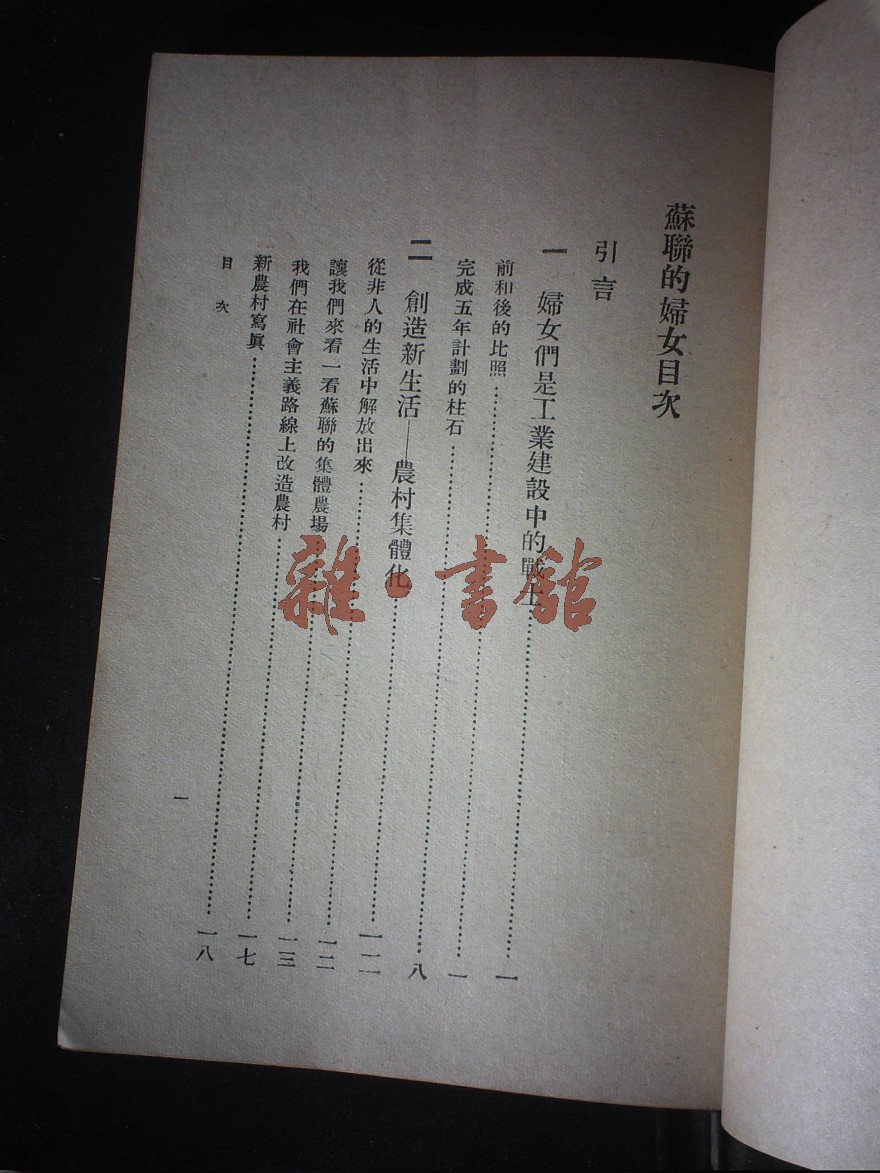 蘇聯的婦女目次
引言
一 婦女們是工業建設中的戰士……一
前和後的比照……一
完成五年計劃的柱石……八
二 創造新生活——農村集體化……一二
從非人的生活中解放出來……一二
讓我們來看一看蘇聯的集體農場……一三
我們在社會主義路線上改造農村……一七
新農村寫眞……一八
目次
一
雜·書館